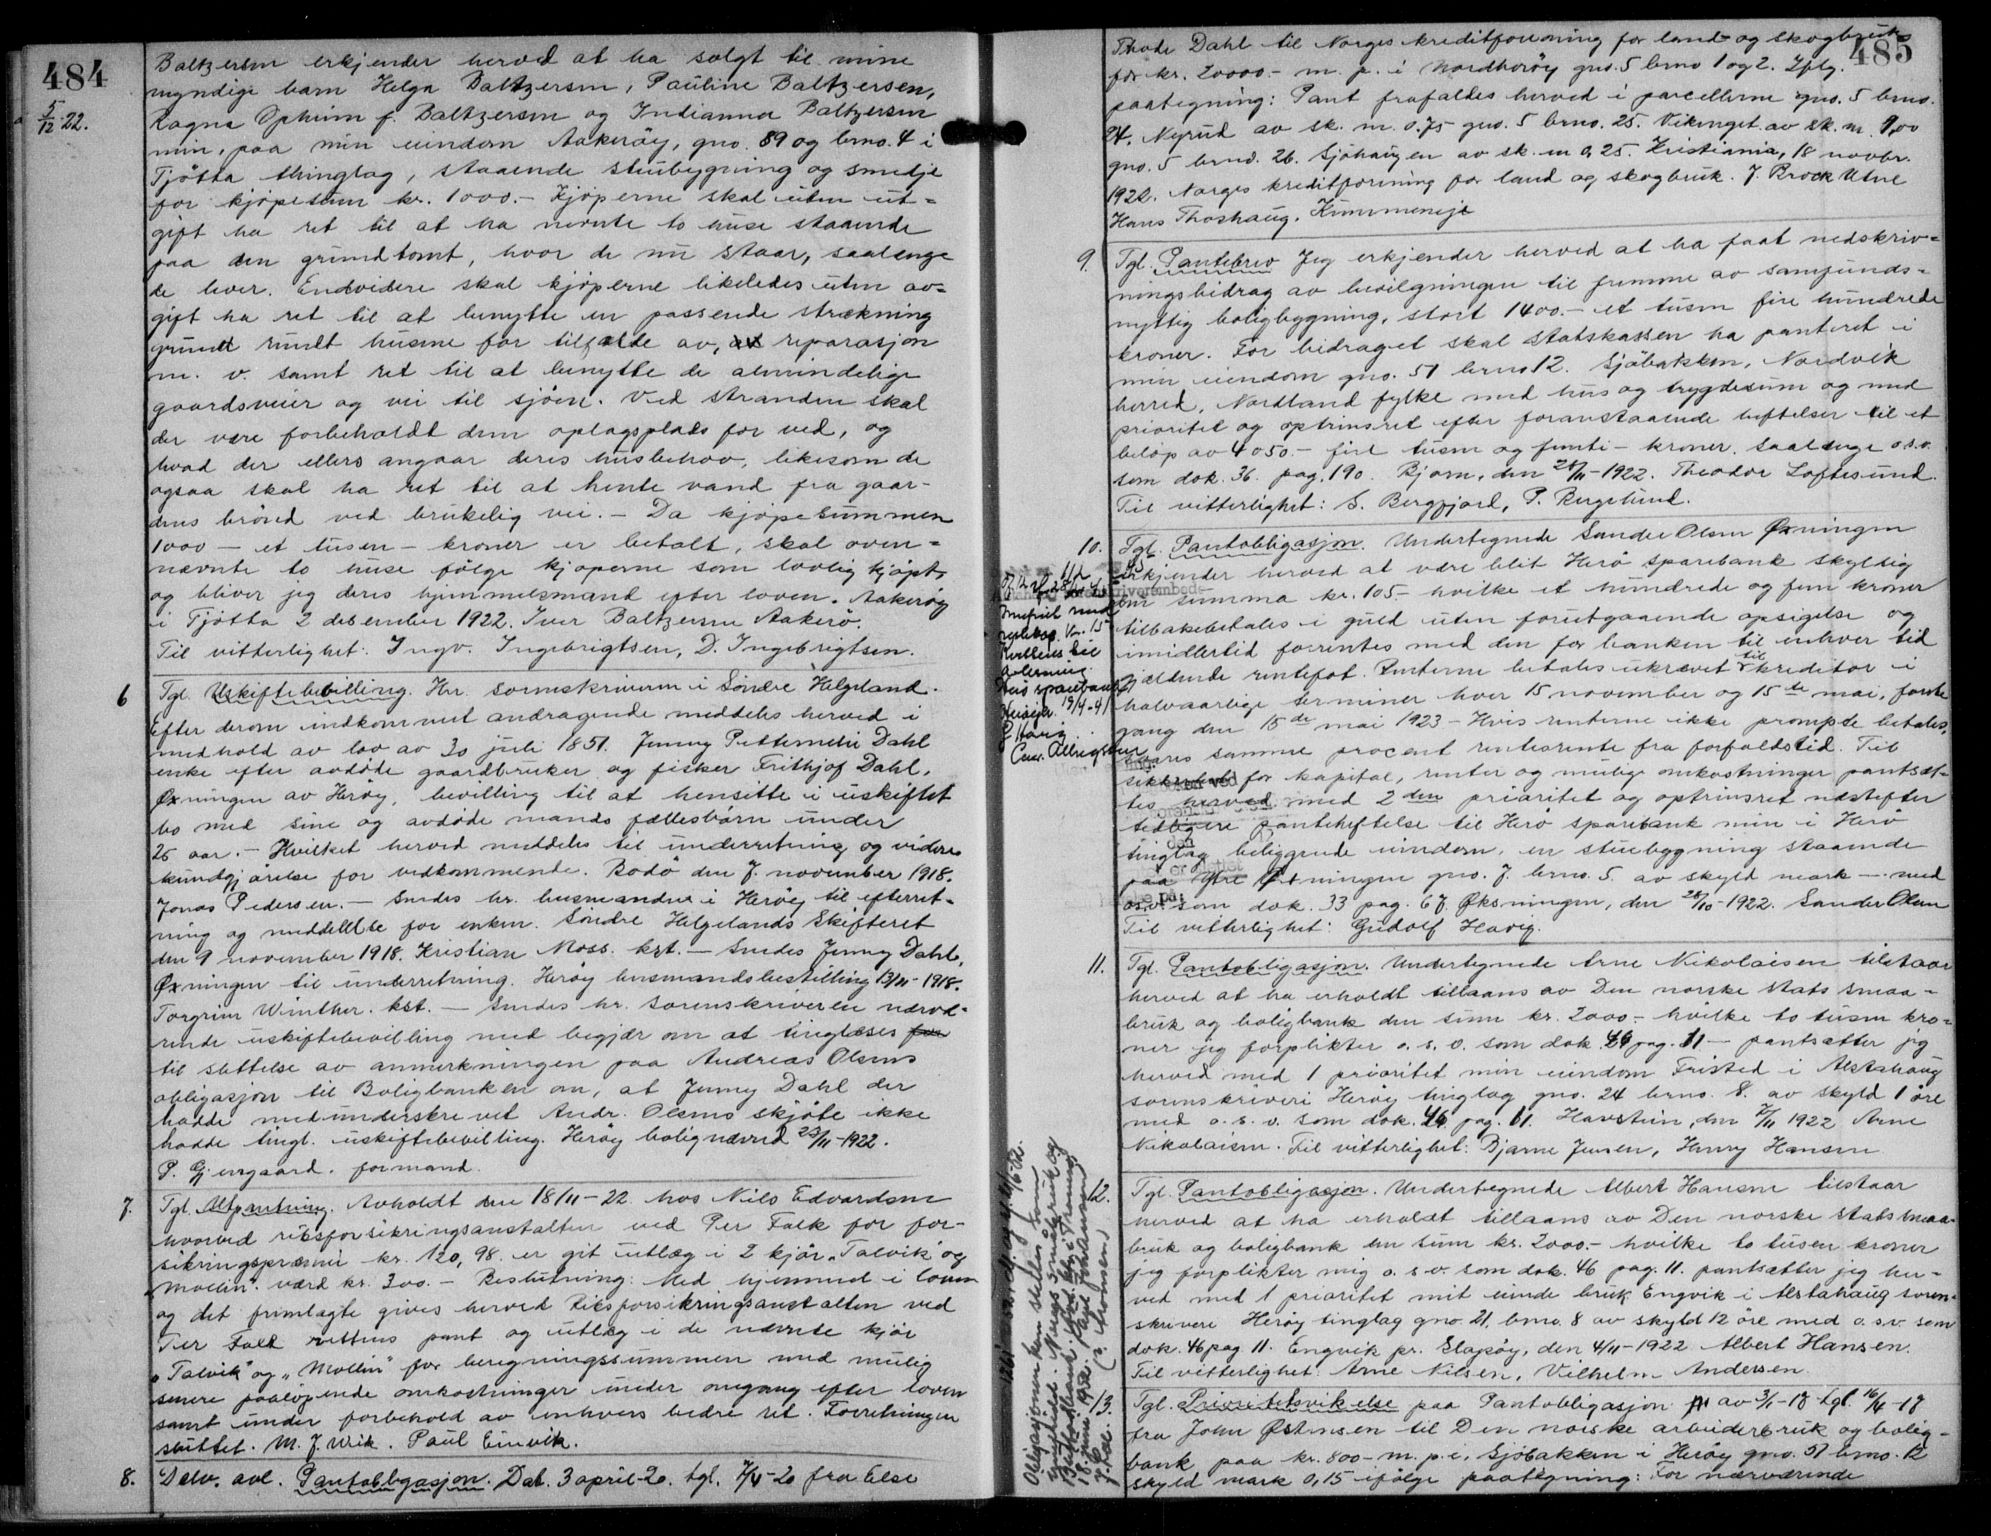 484
5/12-22.
Baltzersen erkjender herved at ha solgt til mine
myndige barn Helga Baltzersen, Pauline Baltzersen,
Ragna f. Baltzersen og Indianna Baltzersen
min, paa min eiendom Aakerøy, gno. 89 og brno. 4 i
Tjøtta thinglag, staaende stuebygning og smedje
for kjøpesum kr. 1000.- Kjøperne skal uten ut=
gift ha ret til at ha nevnte to huse staaende
paa den grundtomt, hvor de nu staar, saalenge
de lever. Endvidere skal kjøperne likeledes uten av=
gift ha ret til at benytte en passende strækning
grund rundt husene for tilfælde av, reparasjon
m. v. samt ret til at benytte de almindelige
gaardsveier og vei til sjøen. Ved stranden skal
der være forbeholdt dem oplagsplads for ved, og
hvad der ellers angaar deres husbehov, likesom de
ogsaa skal ha ret til at hente vand fra gaar-
dens brønd ved brukelig vei. - Da kjøpesummen
1000 - et tusen - kroner er betalt, skal oven=
nævnte to huse følge kjøperne som lovlig kjøpt,
og bliver jeg deres hjemmelsmand efter loven. Aakerøy
i Tjøtta 2 desember 1922. Iver Baltzersen Aakerø.
Til vitterlighet: Ingv. Ingebrigtsen, D. Ingebrigtsen.
6 Tgl. Uskiftebevilling. Hr. sorenskriveren i Søndre Helgeland.
Efter derom indkommet andragende meddeles herved i
medhold av lov av 30 juli 1851. Jenny Petternelie Dahl
enke efter avdøde gaardbruker og fisker Frithjof Dahl,
Øxningen av Herøy, bevilling til at hensitte i uskiftet
bo med sine og avdøde mands fællesbørn under
25 aar. - Hvilket herved meddeles til underretning og videre
kundgjørelse for vedkommende. Bodø den 7. november 1918.
Jonas Pedersen. - Sendes hr. lensmanden i Herøy til efterret-
ning og meddelelse for enken. Søndre Helgelands skifteret
den 9 november 1918. Kristian Moss. kst. - Sendes Jenny Dahl,
Øxningen til underretning. Herøy lensmandsbestilling 13/11-1918.
Torgrim Winther. kst. - Sendes hr. sorenskriveren nærvæ-
rende uskiftebevilling med begjær om at tinglæses for
til slettelse av anmerkningen paa Andreas Olsens
obligasjon til Boligbanken om, at Jenny Dahl der
hadde medunderskrevet Andr. Olsens skjøte ikke
hadde tingl. uskiftebevilling. Herøy bolignævnd 23/11-1922.
P. Gjengaard. formand.
7. Tgl. Utpantning. Avholdt den 18/11-22 hos Nils Edvardsen
hvorved riksforsikringsanstalten ved Per Falk for for-
sikringspræmie kr. 120,98. er git utlæg i 2 kjør "Talvik" og
"Mollin". værd kr. 300. - Beslutning: Med hjemmel i loven
og det fremlagte gives herved Riksforsikringsanstalten ved
Per Falk rettens pant og utlæg i de nævnte kjør
"Talvik" og "Mollin" for beregningssummen med mulig
senere paaløpende omkostninger under omgang efter loven
samt under forbehold av enhvers bedre ret. Forretningen
sluttet. M. J. Wik. Paul Einvik.
8. Delv. avl. Pantobligasjon. Dat. 3 april-20. tgl. 7/4-20 fra Else
485
Thode Dahl til Norges kreditforening for land- og skogbruk
for kr. 20000.- m. p. i Nordherøy gno. 5 brno 1 og 2. Iflg.
paategning: Pant frafaldes herved i parcellerne gno. 5 brno.
24, Nyrud av sk. m. 0.75 gno. 5 brno. 25. Vikinget av sk. m. 1,00
gno. 5 brno. 26. Sjøhaugen av sk. m 0,25. Kristiania, 18 novbr.
1922. Norges kreditforening for land og skogbruk. J. Brock Utne
Hans Thoshaug.
9. Tgl. Pantebrev Jeg erkjender herved at ha faat nedskriv=
ningsbidrag av bevilgningen til fremme av samfunds=
nyttig boligbygning, stort 1400.- et tusen fire hundrede
kroner. For bidraget skal statskassen ha panteret i
min eiendom gno. 51 brno 12. Sjøbakken, Nordvik
herred, Nordland fylke med hus og trygdesum og med
prioritet og optrinsret efter foranstaaende heftelser til et
beløp av 4050.- fire tusen og femti - kroner. saalenge o.s.v.
som dok. 36. pag. 190. Bjørn, den 24/11-1922. Theodor Loftesund.
Til vitterlighet: S. Bergfjord, P. Bergslund.
10. Tgl. Pantobligasjon. Undertegnede Sander Olsen Øxningen
erkjender herved at være blit Herø sparebank skyldig
en summa kr. 105.- hvilke et hundrede og fem kroner
tilbakebetales i guld uten forutgaaende opsigelse og
imidlertid forrentes med den for banken til enhver tid
gjældende rentefot. Renterne betales ukrævet til kreditor i
halvaarlige terminer hver 15 november og 15de mai, første
gang den 15de mai 1923 - Hvis renterne ikke prompte betales,
svares samme procent rentesrente fra forfaldstid. Til
sikkerhed for kapital, renter og mulige omkostninger pantsæt-
tes herved med 2den prioritet og optrinsret næstefter
tidligere panteheftelse til Herø sparebank min i Herø
tinglag beliggende eiendom, en stuebygning staaende
paa Ytre Øxningen gno. 7. brno. 5. av skyld mark - med
o.s.v. som dok. 33 pag. 67. Øksningen, den 28/10-1922. Sander Olsen
Til vitterlighet: Gudolf Havig.
11. Tgl. Pantobligasjon. Undertegnede Arne Nikolaisen tilstaar
herved at ha erholdt tillaans av Den norske stats smaa-
bruk og boligbank den sum kr. 2000.- hvilke to tusen kro=
ner jeg forplikter o. s. v. som dok. 46 pag. 11 - pantsætter jeg
herved med 1 prioritet min eiendom Fristed i Alstahaug
sorenskriveri Herøy tinglag gno. 24 brno. 8. av skyld 1 øre
med o. s. v. som dok. 46 pag. 11. Havstein, den 7/11 1922 Arne
Nikolaisen. Til vitterlighet: Bjarne Jensen, Henry Hansen
12. Tgl. Pantobligasjon. Undertegnede Albert Hansen tilstaar
herved at ha erholdt tillaans av Den norske stats smaa-
bruk og boligbank en sum kr. 2000.- hvilke to tusen kroner
jeg forplikter mig o. s v. som dok. 46 pag. 11. pantsætter jeg her-
ved med 1 prioritet mit eiende bruk Engvik i Alstahaug soren-
skriveri Herøy tinglag gno 21, brno. 8 av skyld 12 øre med o. s.v. som
dok. 46 pag 11. Engvik pr. Slapøy, den 4/11-1922 Albert Hansen.
Til vitterlighet: Arne Nilsen, Vilhelm Andersen.
13. Tgl. Prioritetsvikelse paa Pantobligasjon av 3/1-18 tgl. 16/4-18
fra John Østensen til Den norske arbeiderbruk og bolig-
bank paa kr. 800 - m. p. i. Sjøbakken i Herøy gno. 51 brno. 12
skyld mark 0,15 ifølge paategning: For nærværende